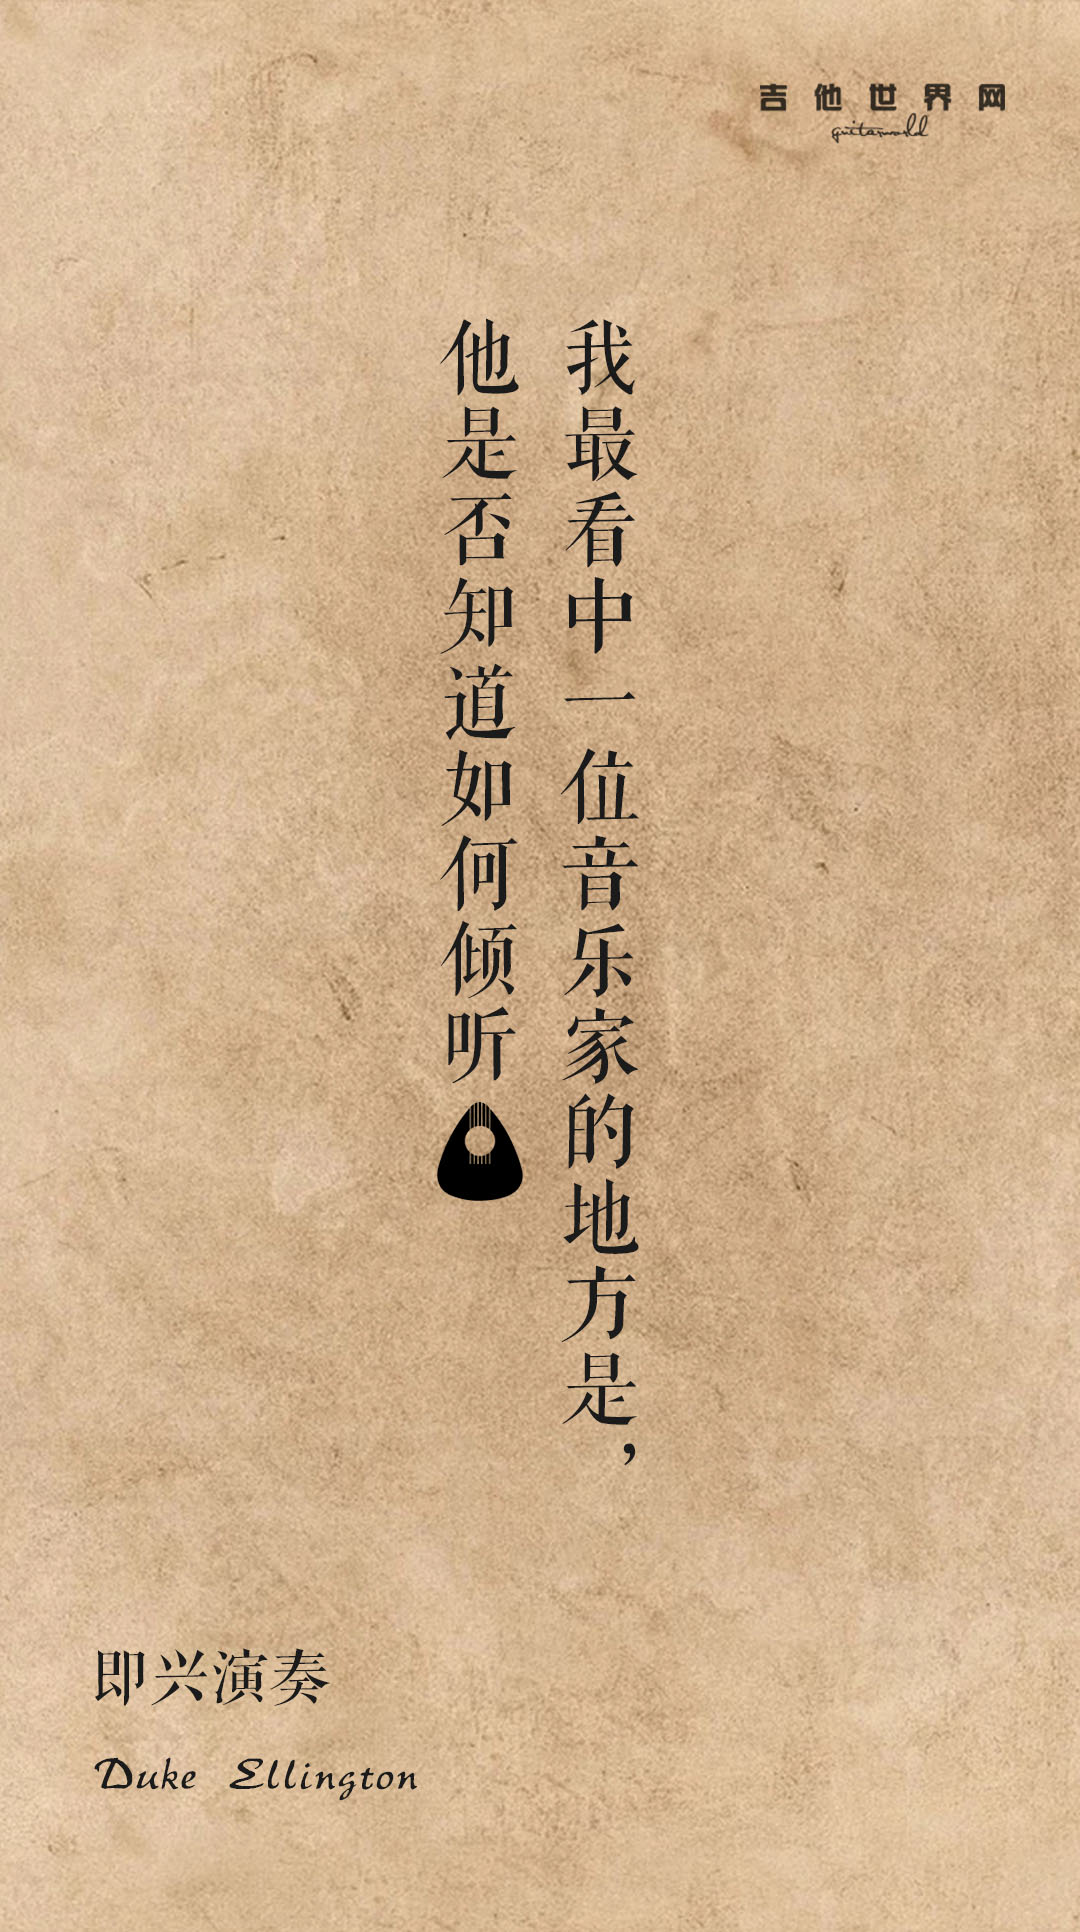 吉他世界网
guitarworld
我最看中一位音乐家的地方是，
他是否知道如何倾听
即兴演奏
Duke Ellington